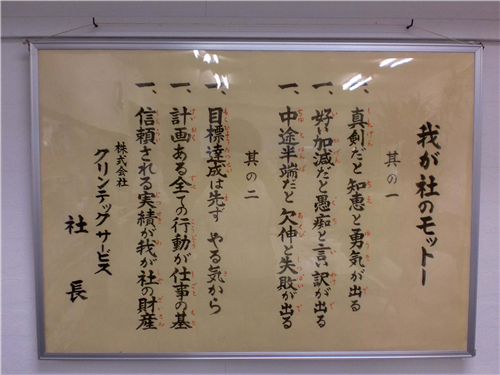 我が社のモットー
其の一
一、真剣だと知恵と勇気が出る
一、好い加減だと愚痴と言い訳が出る
一、中途半端だと欠伸と失敗が出る
其の二
一、目標達成は先ず やる気から
一、計画ある全ての行動が仕事の基
一、信頼される実績が我が社の財産
株式会社
クリンテックサービス
社長